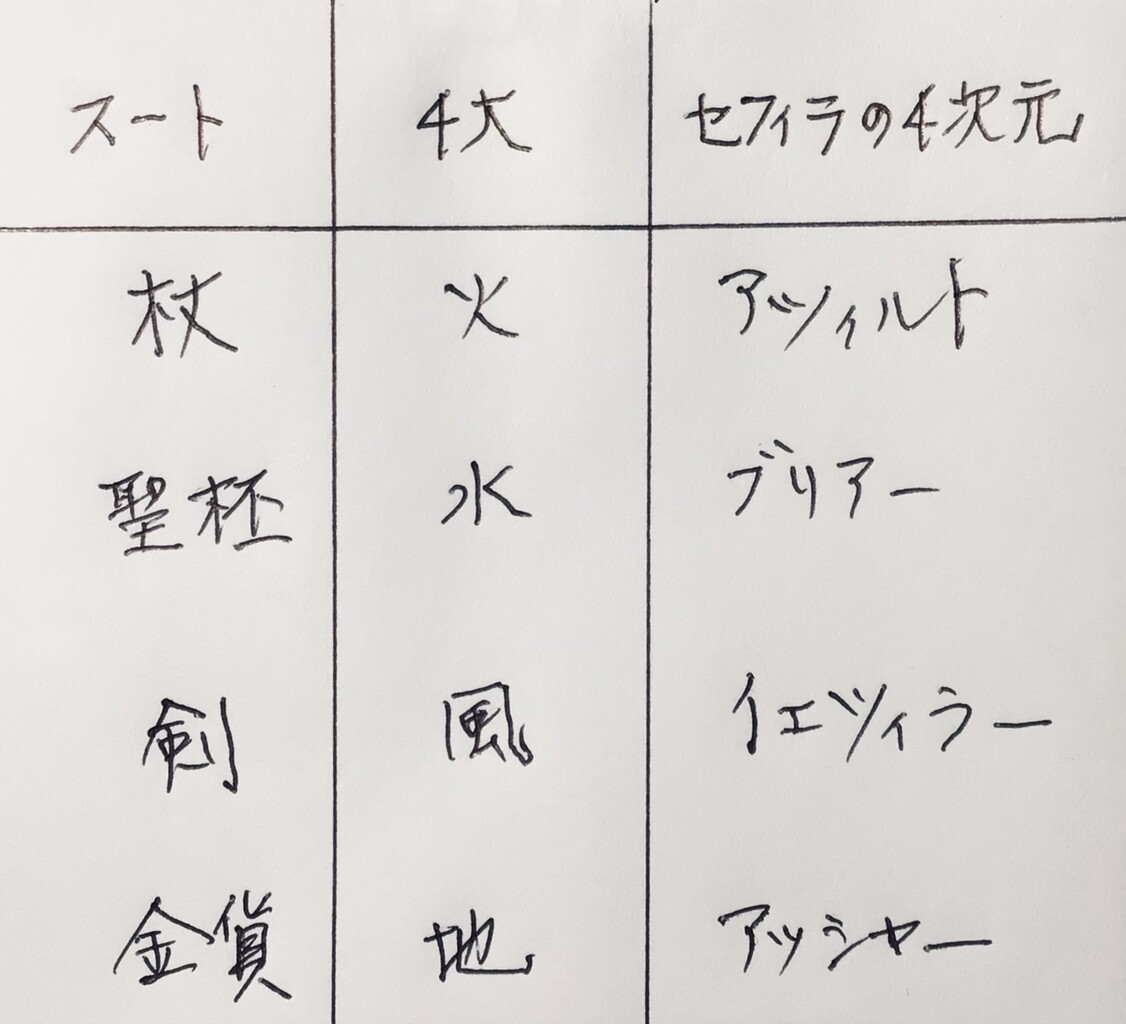 スート 4大 セフィラの4次元
杖 火 アツィルト
聖杯 水 ブリアー
剣 風 イエツィラー
金貨 地 アッシャー